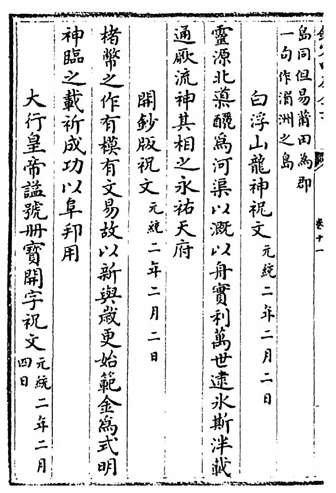 卷十一
島同但易莆田為郡
一句作湄洲之島
白浮山龍神祝文元統二年二月二日
靈源北導釃為河渠以溉以舟實利萬世逮氷斯泮載
通厥流神其相之永祐天府
開鈔版祝文元統二年二月二日
楮幣之作有模有文易故以新與歲更始範金為式明
神臨之載祈成功以阜邦用
大行皇帝謚號册寶開字祝文元統二年二月
四日